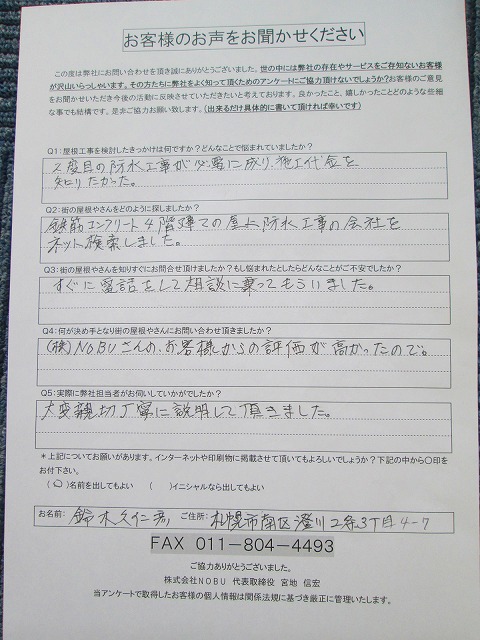 お客様のお声をお聞かせください
この度は弊社にお問い合わせを頂き誠にありがとうございました。世の中には弊社の存在やサービスをご存知ないお客様
が沢山いらっしゃいます。その方たちに弊社をよく知って頂くためのアンケートにご協力頂けないでしょうか?お客様のご意見
をお聞かせいただき今後の活動に反映させていただきたいと考えております。良かったこと、嬉しかったことどのような些細
な事でも結構です。是非ご協力お願い致します。(出来るだけ具体的に書いて頂ければ幸いです)
Q1:屋根工事を検討したきっかけは何ですか?どんなことで悩まれていましたか?
2度目の防水工事が必要に成り、施工代金を
知りたかった。
Q2:街の屋根やさんをどのように探しましたか?
鉄筋コンクリート4階建ての屋上防水工事の会社を
ネット検索しました。
Q3:街の屋根やさんを知りすぐにお問合せ頂けましたか?もし悩まれたとしたらどんなことがご不安でしたか?
すぐに電話をして相談に乗ってもらいました。
Q4:何が決め手となり街の屋根やさんにお問い合わせ頂きましたか?
(株)NOBUさんの、お客様からの評価が高かったので。
Q5:実際に弊社担当者がお伺いしていかがでしたか?
大変親切丁寧に説明して頂きました。
*上記についてお願いがあります。インターネットや印刷物に掲載させて頂いてもよろしいでしょうか?下記の中から〇印を
お付け下さい。
(〇)名前を出してもよい ( )イニシャルなら出してもよい
お名前: 鈴木久仁彦 ご住所: 札幌市南区澄川2条3丁目4-7
FAX 011-804-4493
ご協力ありがとうございました。
株式会社NOBU 代表取締役 宮地 信宏
当アンケートで取得したお客様の個人情報は関係法規に基づき厳正に管理いたします。